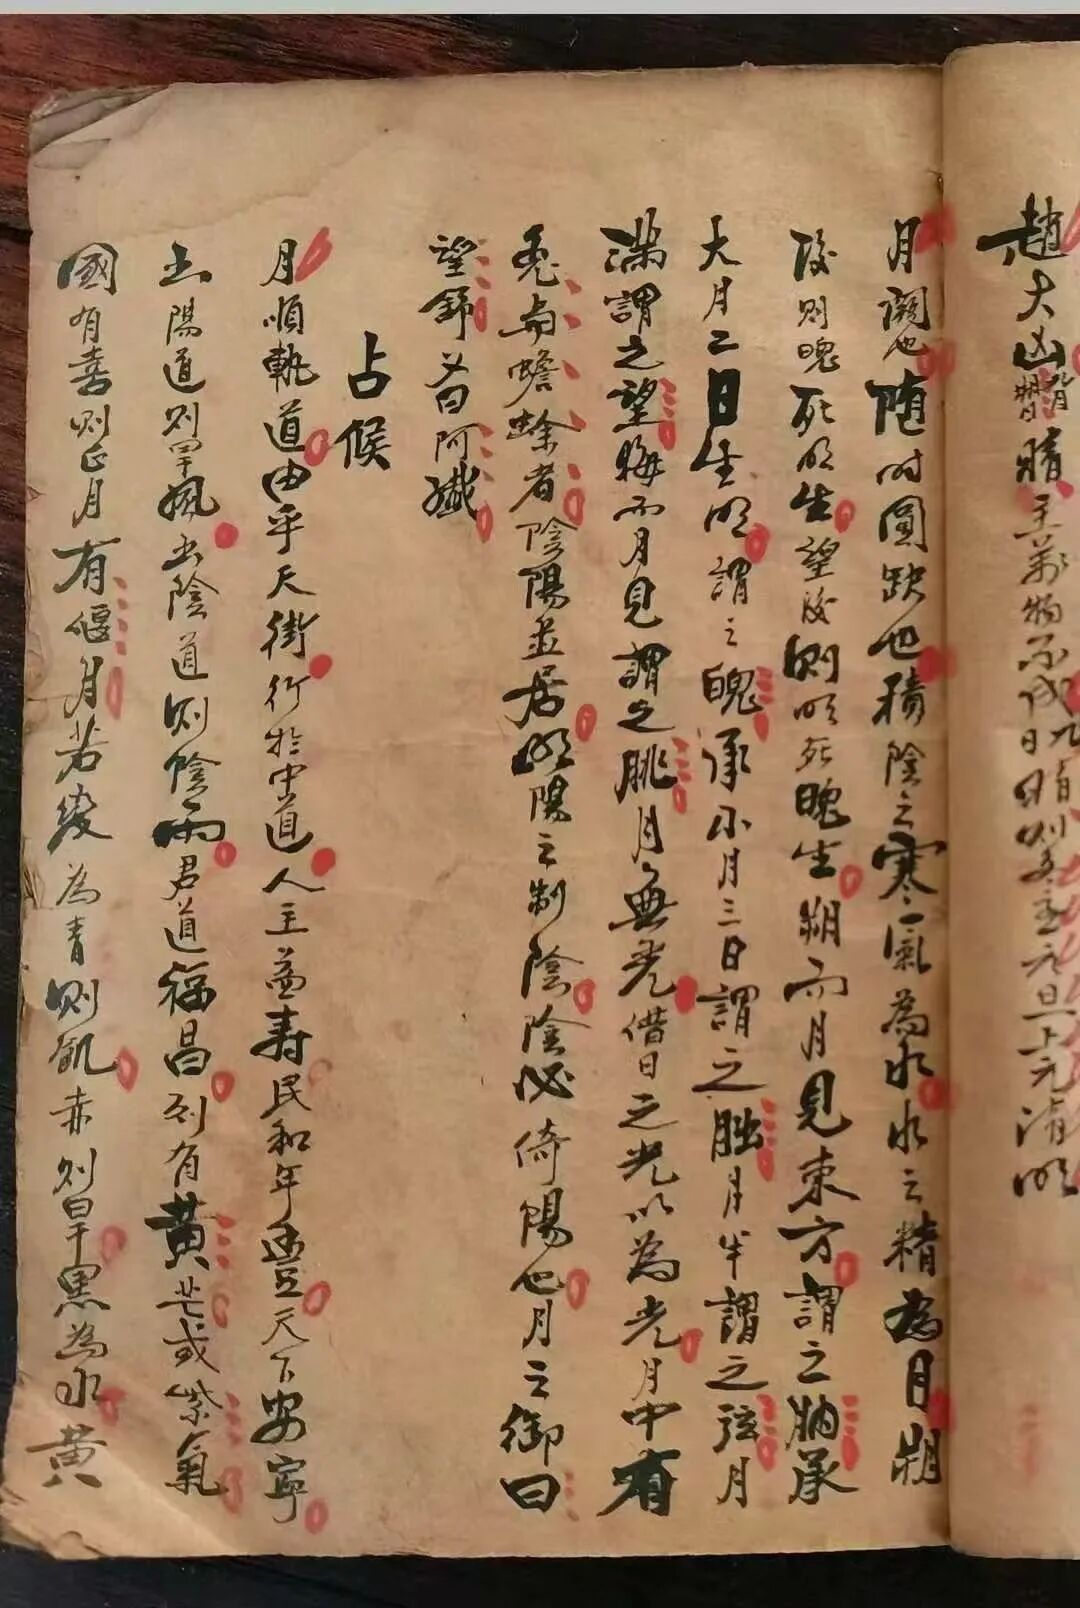 趙大凶朔晴主萬物不成九日晴則冬至元旦上元清明
月闕也随时圓缺也積陰之寒氣為水水之精為月朔
後则魄死明生望後则明死魄生朔而月見東方謂之朒承
大月二日生明謂之魄承小月三日謂之朏月半謂之弦月
滿謂之望晦而月見謂之朓月無光借日之光以為光月中有
兎与蟾蜍者陰陽並居明陽之制陰陰必倚陽也月之御曰
望舒又曰阿孅
占候
月順軌道由乎天街行於中道人主益寿民和年豊天下安寧
出陽道则旱風出陰道则陰雨君道福昌则有黄芒或紫氣
國有喜则正月有偃月若变為青则飢赤则旱黒為水黄